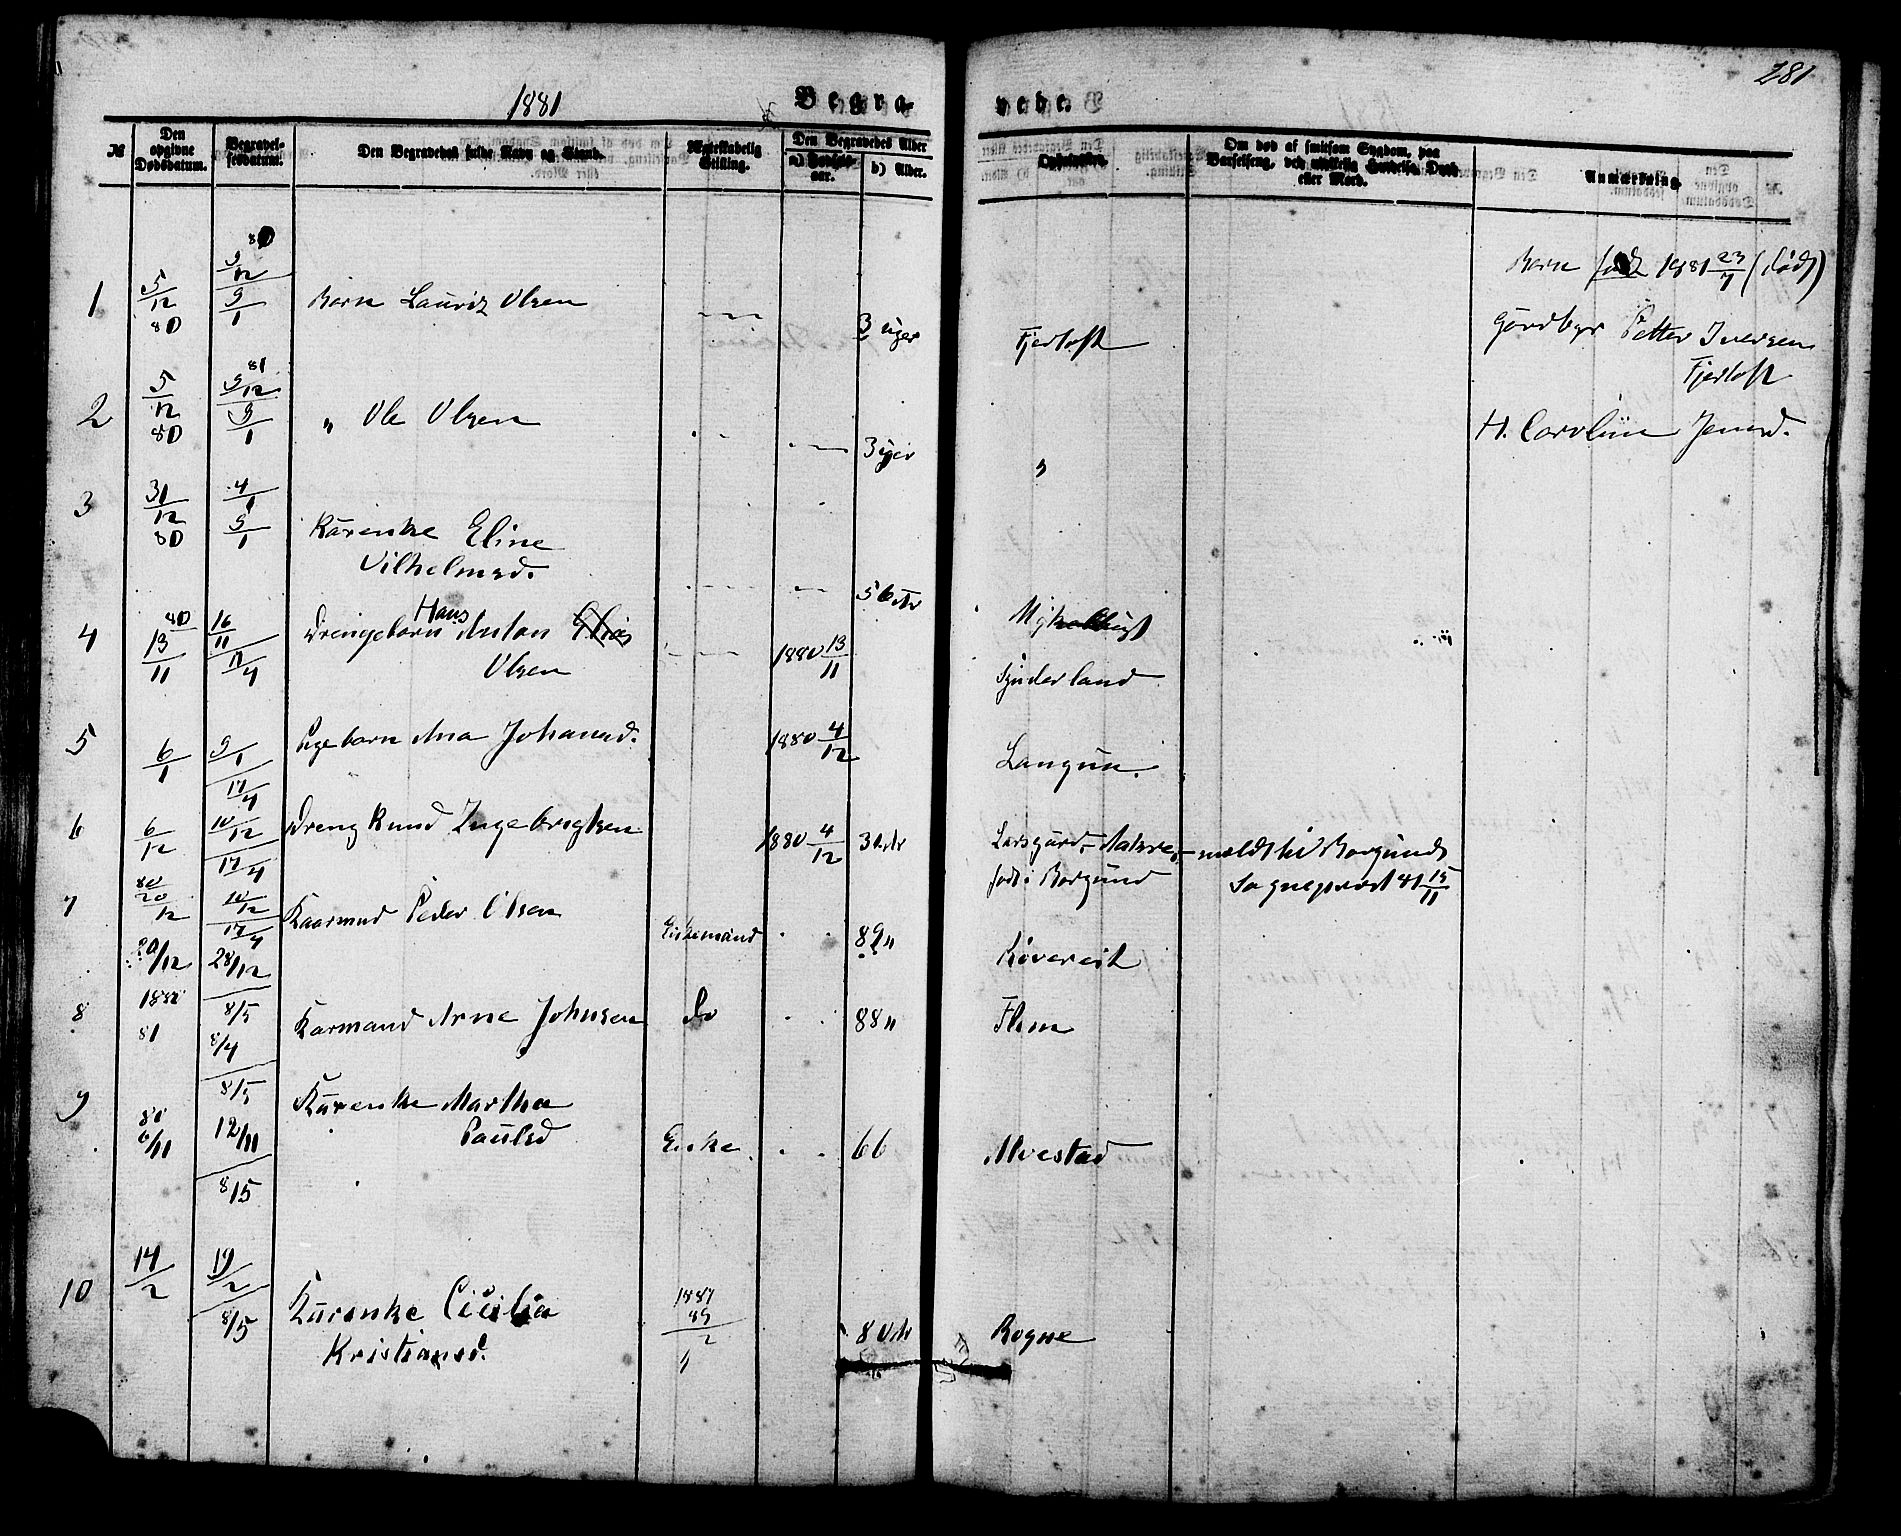 281
1881
Begra-
vede.
№
Den opgivne Dødsdatum.
Begravel-sesdatum.
Den Begravedes fulde Navn og Stand.
Borgerlig Stilling.
Den Begravedes Alder
a) Fødsels-aar.
b) Alder.
Opholdssted.
Om død af smitsom Sygdom, paa Barselseng, ved ulykkelig Hændelse, Drab eller Mord.
Anmærkning.
1
5/12 80
80
9/12
9/1
Barn Lauritz Olsen
3 uger
Fjertoft
Barn født 1881 23/7 (død)
Gårdbgr Petter Iversen
Fjertoft
H. Caroline Jensd.
2
5/12 80
81
9/12
9/1
" Ole Olsen
3 uger
"
3
31/12 80
4/1
9/1
Kårenke Eline
Vilhelmsd.
56 År
4
80
13/11
16/11
17/4
Drengebarn Hans Anton Elias
Olsen
1880 13/11
Synderland
5
6/1
9/1
17/4
Pigebarn Ana Johansd.
1880 4/12
Longva.
6
6/12
10/12
17/4
Dreng Knud Ingebrigtsen
1880 4/12
født i Borgund
meldt til Borgunds
Sognepræst 81 15/11
7
80
20/12
10/12
17/4
Kaarmand Peder Olsen
Enkemand
89 "
20/12
28/12
8/5
8
81
8/4
8/5
Karmand Arne Johnsen
do
88 "
Flem
9
80
6/11
12/11
8/5
Kårenke Martha
Paulsd
Enke
66
Alvestad
10
14/2
19/2
8/5
Kårenke Cicilia
Kristiansd.
80 År
Rogne